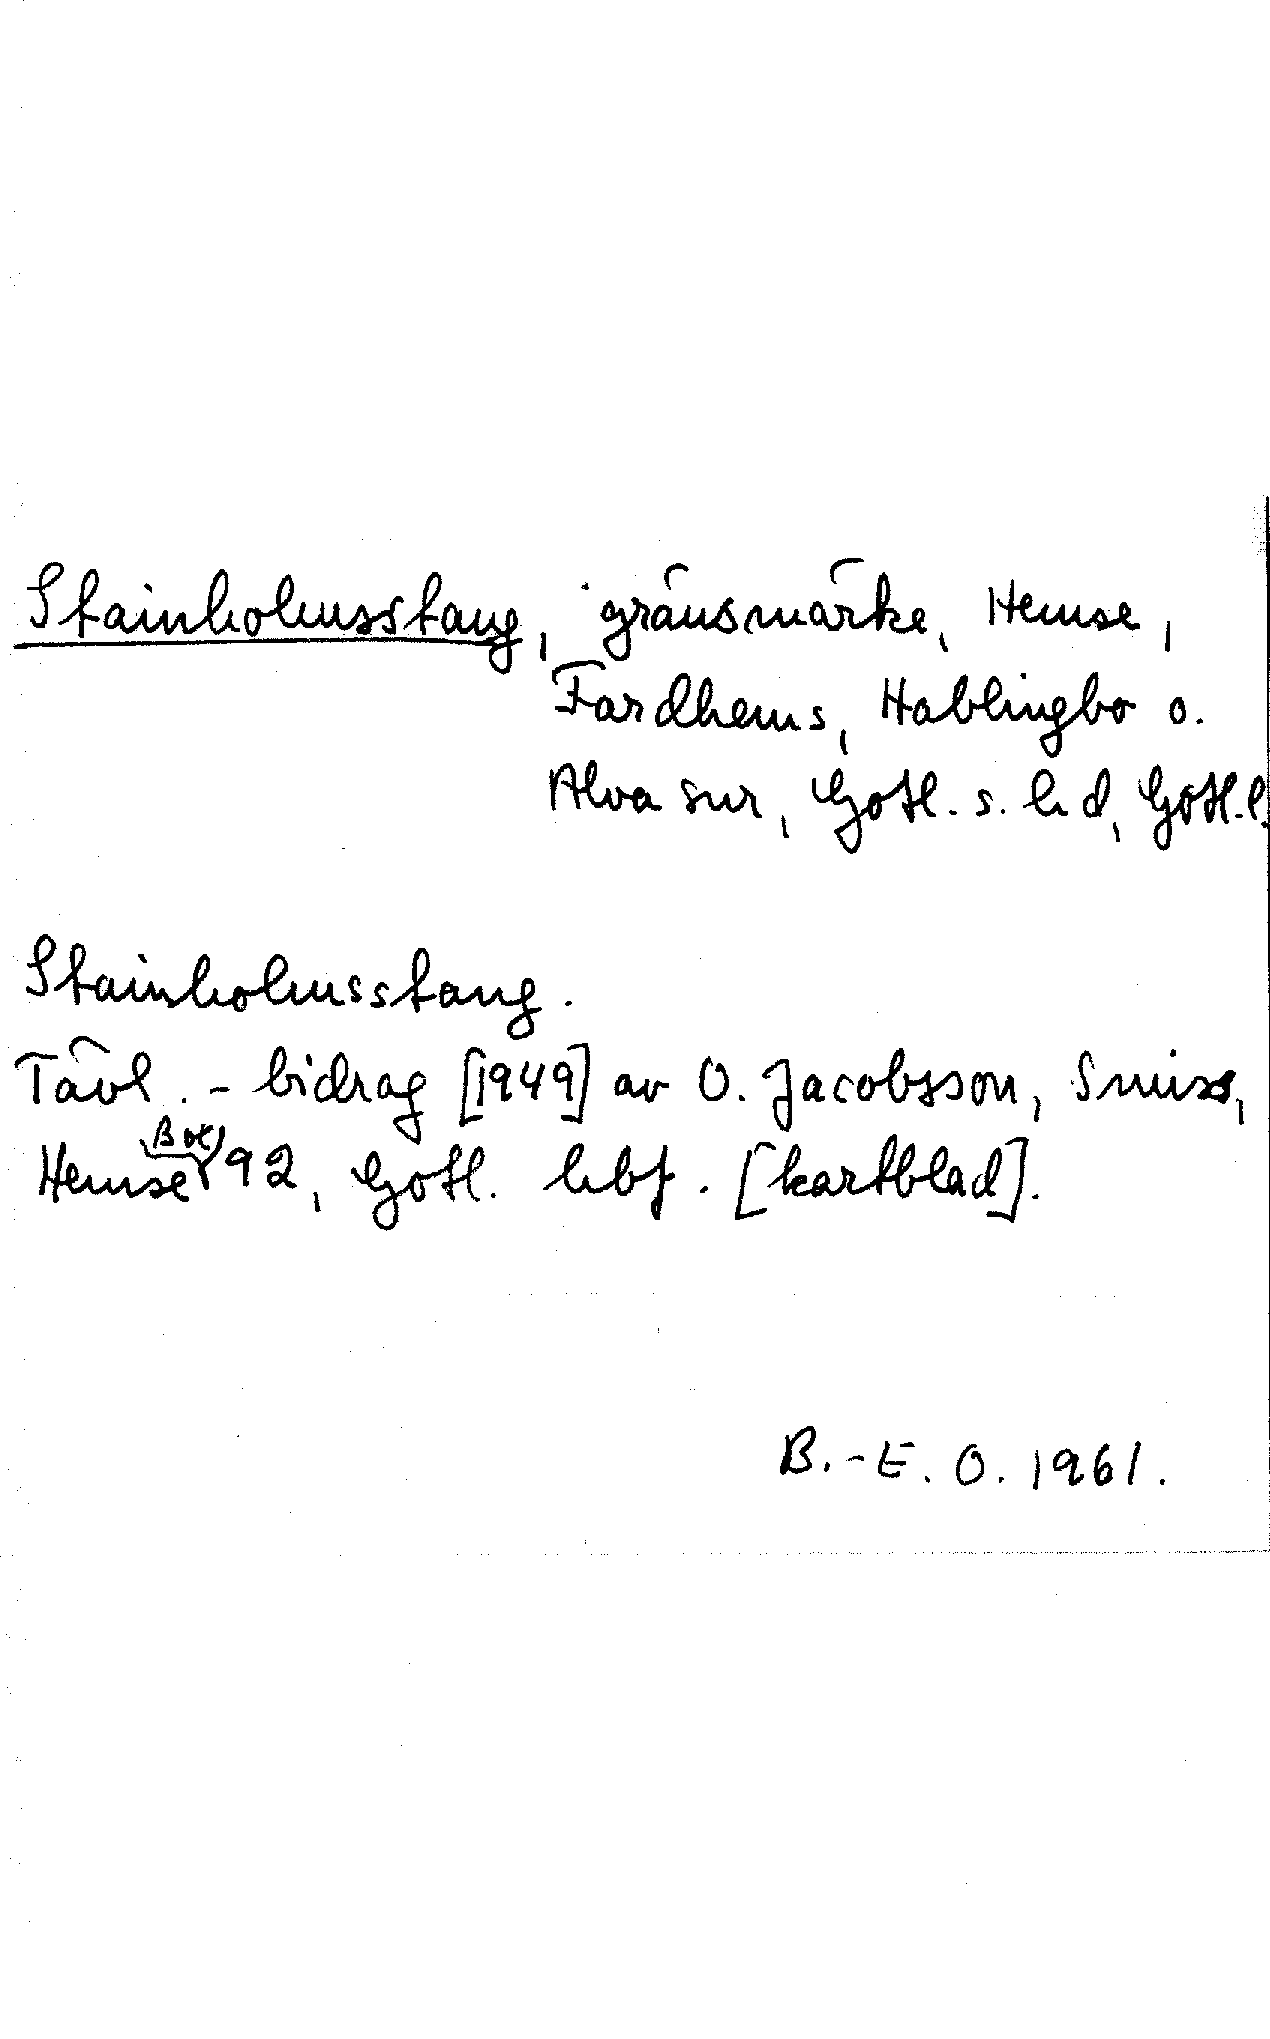 Stainholmsstaug, gränsmärke, Hemse,
Fardhems, Hablingbo o.
Alva snr, Gotl. s. hd, Gotl. l.
Stainholmsstaug.
Tävl. - bidrag [1949] av O. Jacobsson, Smiss,
Hemse Box 92, Gotl. hbf. [kartblad].
B.-E. O. 1961.